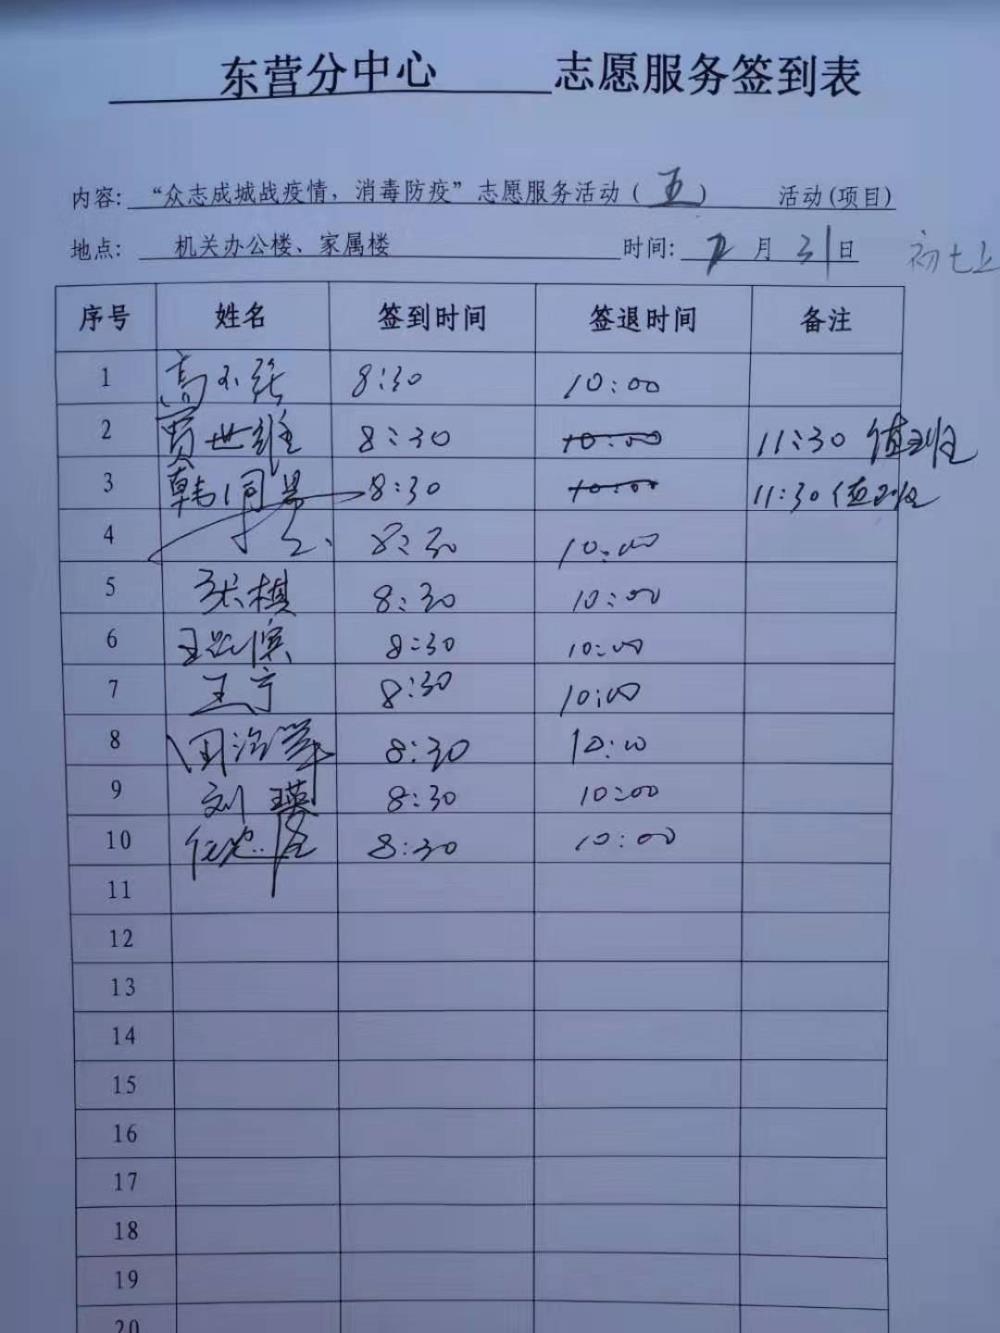 东营分中心 志愿服务签到表
内容: “众志成城战疫情，消毒防疫”志愿服务活动（五） 活动(项目)
地点: 机关办公楼、家属楼 时间: 月 31 日 初七上
序号 姓名 签到时间 签退时间 备注
1 8:30 10:00
2 贾世雄 8:30 10:00 11:30 值班
3 8:30 10:00 11:30 值班
4 8:30 10:00
5 张棋 8:30 10:00
6 8:30 10:00
7 王宁 8:30 10:00
8 8:30 10:00
9 刘瑛 8:30 10:00
10 8:30 10:00
11
12
13
14
15
16
17
18
19
20